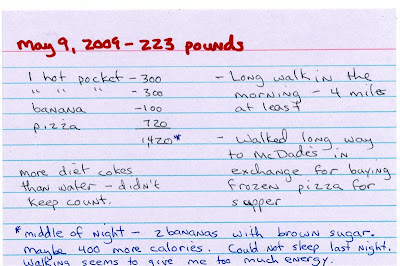 may 9, 2009 - 223 pounds
1 hot pocket - 300
" " " - 300
banana - 100
pizza 720
1420*
more diet cokes
than water - didn't
keep count.
- Long walk in the
morning - 4 miles
at least
- Walked long way
to McDade's in
exchange for buying
frozen pizza for
supper
*middle of night - 2 bananas with brown sugar.
maybe 400 more calories. Could not sleep last night.
Walking seems to give me too much energy.